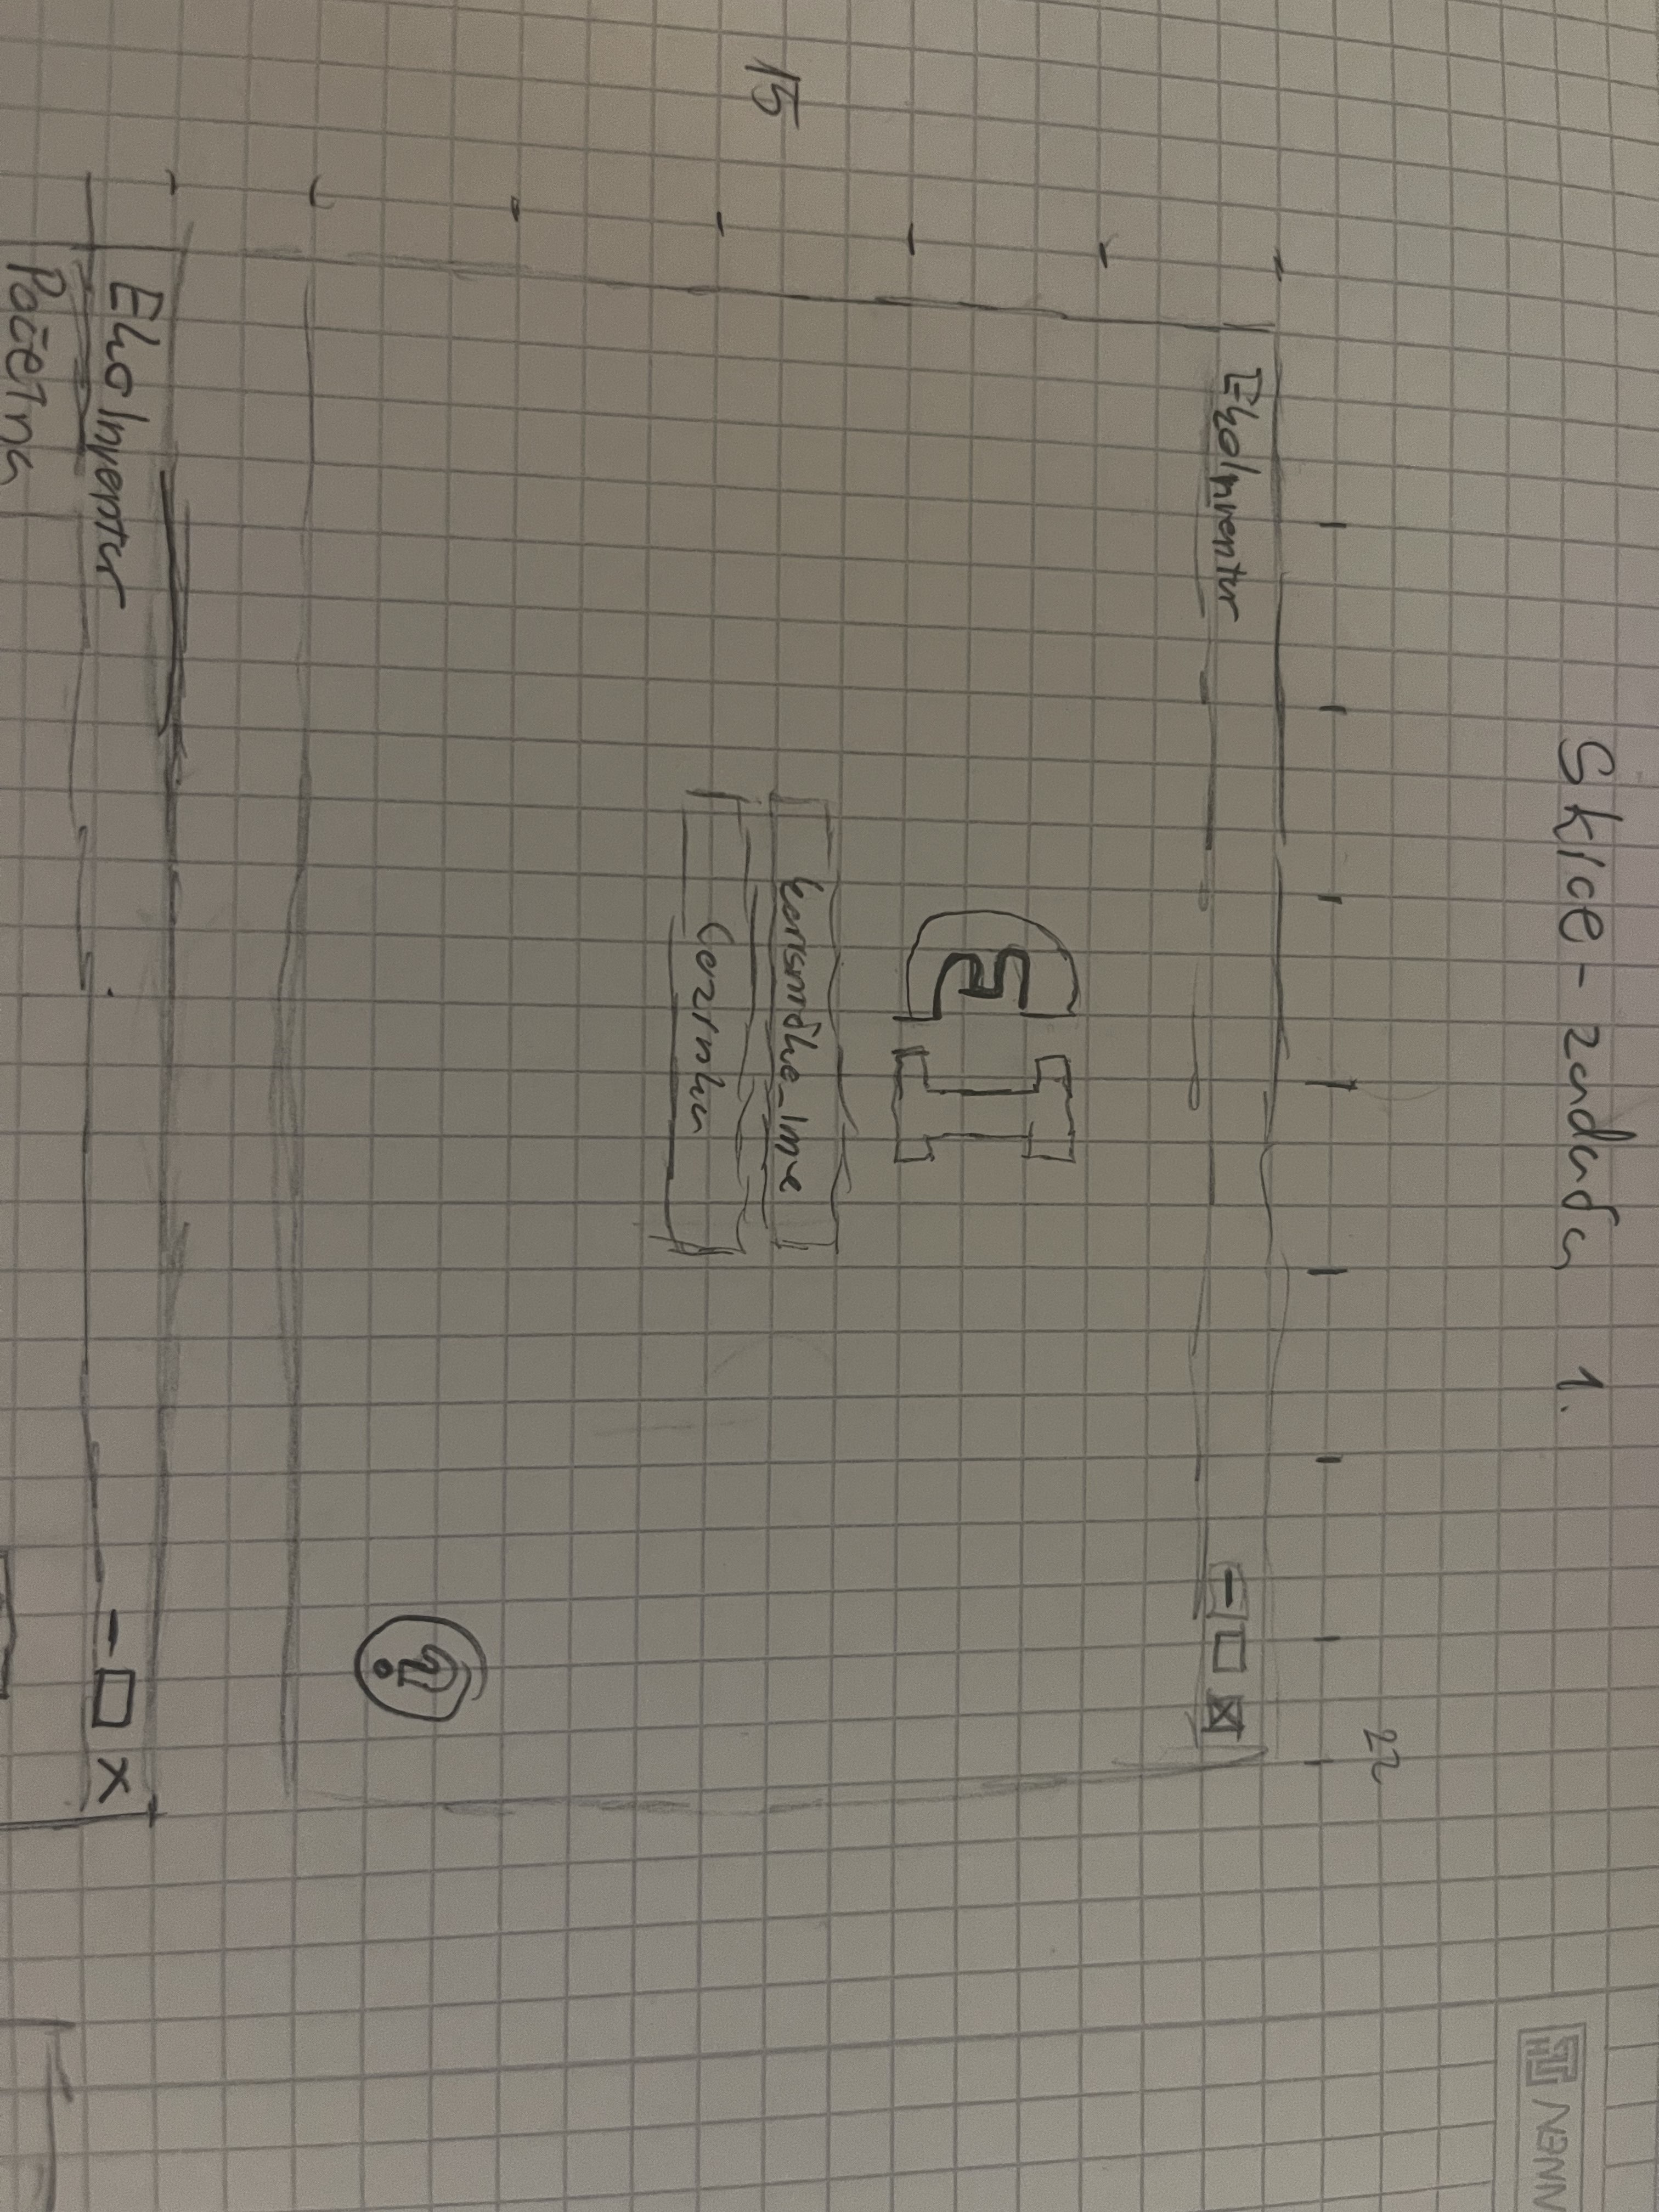 Skice - zadaća 1.
22
EkoInventar
EI
korisničko_ime
Lozinka
15
?
EkoInventar
Početna